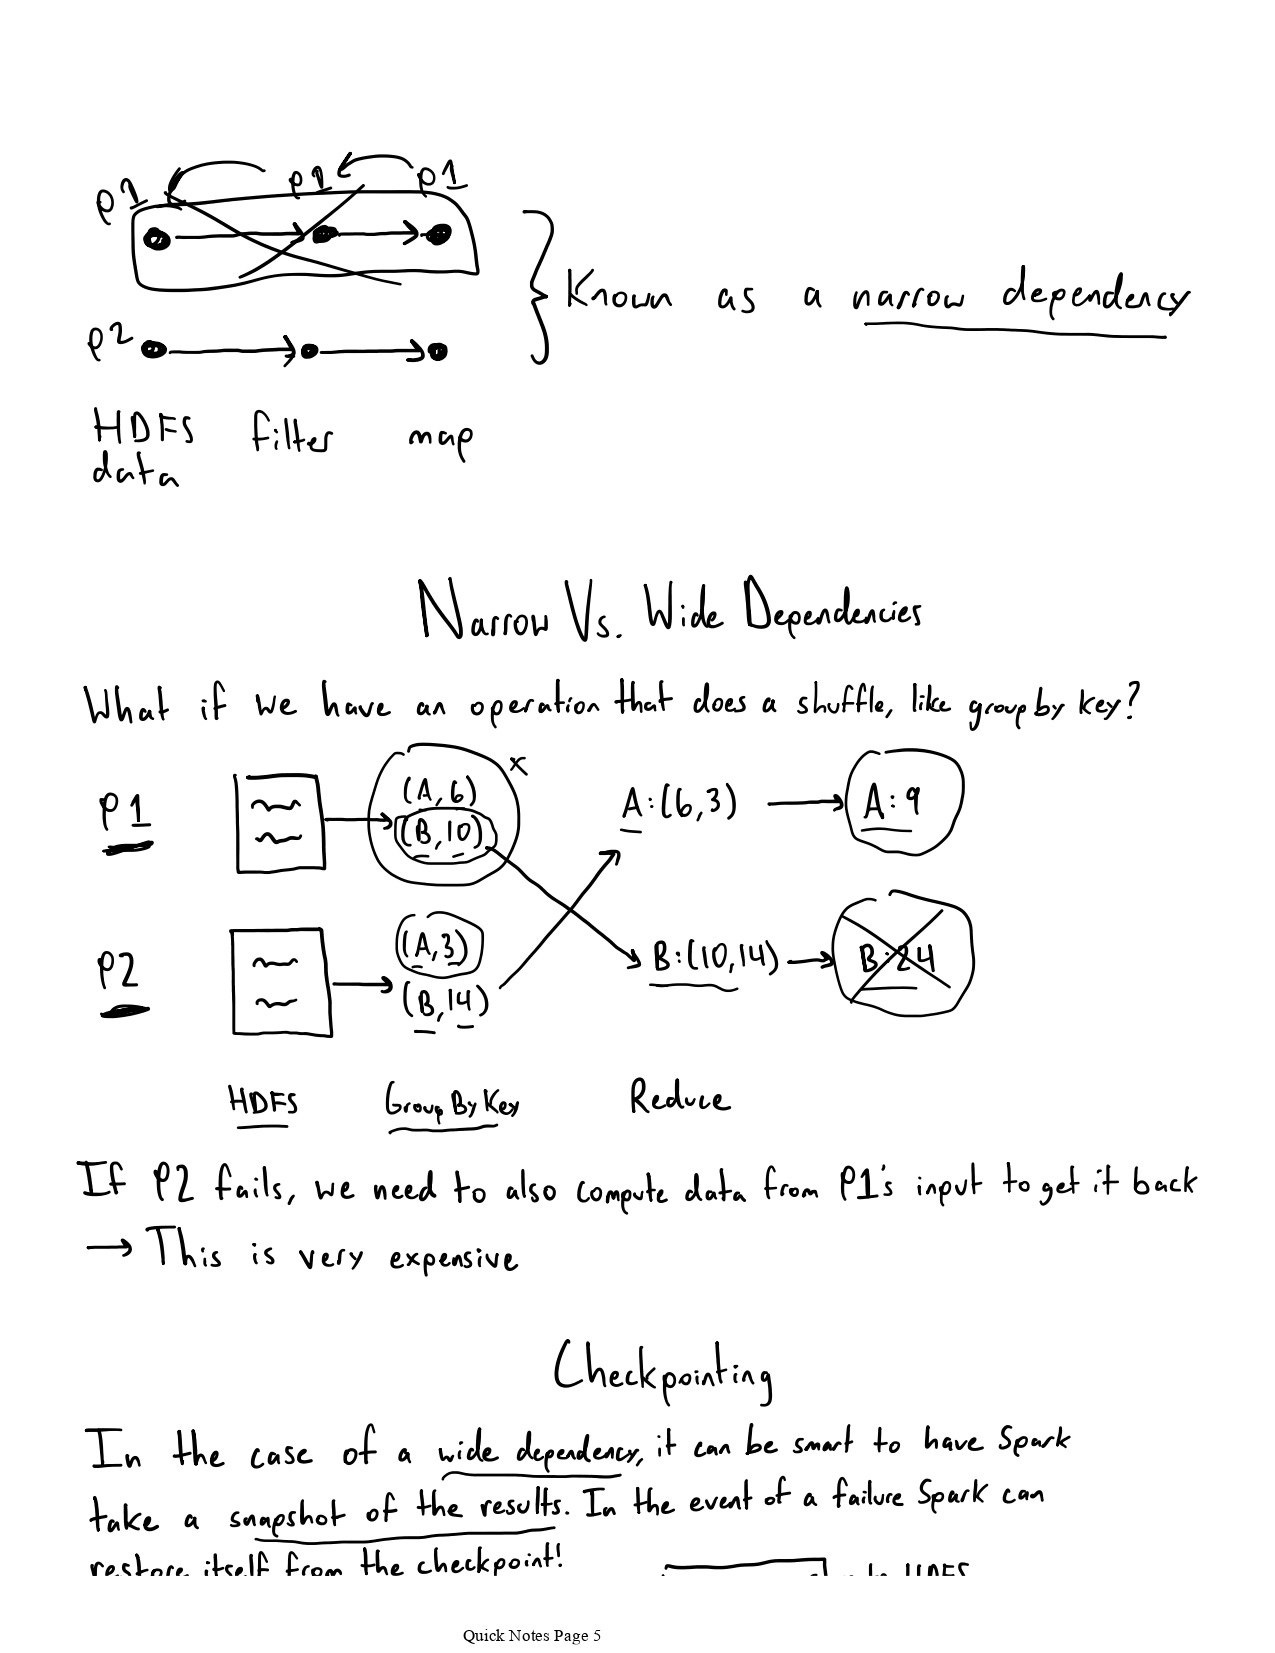 P1 P1 P1
Known as a narrow dependency
P2
HDFS filter map
data
Narrow Vs. Wide Dependencies
What if we have an operation that does a shuffle, like group by key?
x
(A,6)
P1 A:(6,3) A:9
(B,10)
(A,3)
P2 B:(10,14) B:24
(B,14)
HDFS Group By Key Reduce
If P2 fails, we need to also compute data from P1's input to get it back
→ This is very expensive
Checkpointing
In the case of a wide dependency, it can be smart to have Spark
take a snapshot of the results. In the event of a failure Spark can
restore itself from the checkpoint!
HDFS
Quick Notes Page 5